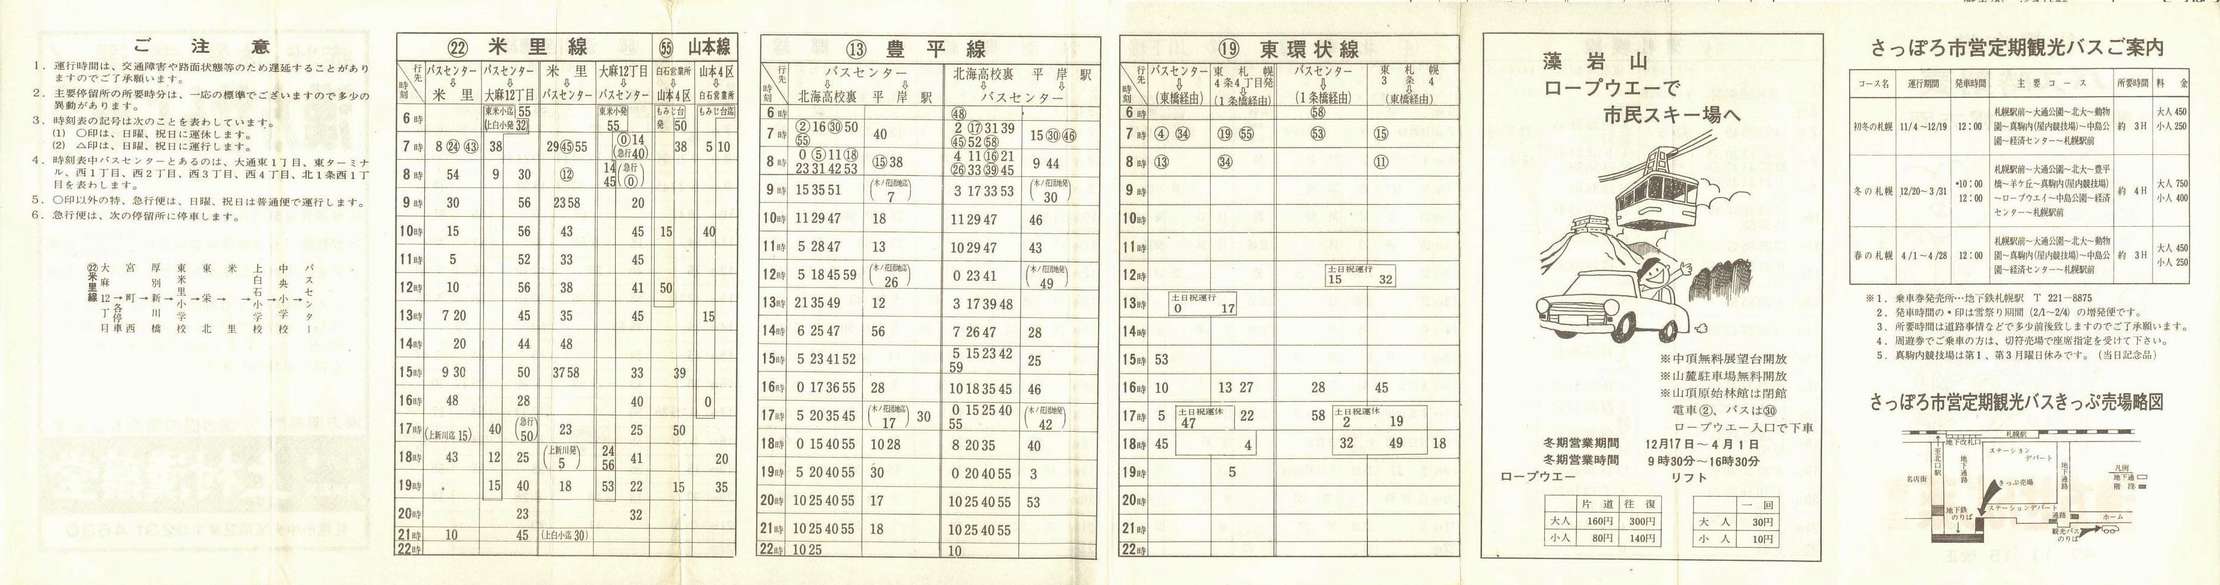 ご 注 意
1. 運行時間は、交通障害や路面状態等のため遅延することがあり
ますのでご了承願います。
2. 主要停留所の所要時分は、一応の標準でございますので多少の
異動があります。
3. 時刻表の記号は次のことを表わしています。
(1) ○印は、日曜、祝日に運休します。
(2) △印は、日曜、祝日に運行します。
4. 時刻表中バスセンターとあるのは、大通東1丁目、東ターミナ
ル、西1丁目、西2丁目、西3丁目、西4丁目、北1条西1丁
目を表わします。
5. ○印以外の特、急行便は、日曜、祝日は普通便で運行します。
6. 急行便は、次の停留所に停車します。
㉒米里線
大麻12丁目
宮町西
厚別新川橋
東米里小学校
東栄
米里
上白石小学校
中央小学校
バスセンター
各停車
㉒ 米里線
行先 時刻
バスセンター⇩米里
バスセンター⇩大麻12丁目
米里⇩バスセンター
大麻12丁目⇩バスセンター
6時 東米小迄 55 (上白小発 32) 東米小発 55
7時 8 ㉔ ㊸ 38 29 ㊺ 55 ⓪ 14 (急行 40)
8時 54 9 30 ⑫ 14 45 (急行 ⓪)
9時 30 56 23 58 20
10時 15 56 43 45
11時 5 52 33 45
12時 10 56 38 41
13時 7 20 45 35 45
14時 20 44 48
15時 9 30 50 37 58 33
16時 48 28 40
17時 (上新川迄 15) 40 (急行 50) 23 25
18時 43 12 25 (上新川発 5) 24 56 41
19時 15 40 18 53 22
20時 23 32
21時 10 45 (上白小迄 30)
22時
55 山本線
白石営業所⇩山本4区
山本4区⇩白石営業所
もみじ台発 50 もみじ台迄
38 5 10
15 40
50
15
39
0
50
20
15 35
⑬ 豊平線
行先 時刻
バスセンター⇩北海高校裏 平岸駅
北海高校裏 平岸駅⇩バスセンター
6時 ㊽
7時 ② 16 ㉚ 50 55 40 2 ⑰ 31 39 ㊺ 52 58 15 ㉚ ㊻
8時 0 ⑤ 11 ⑱ 23 31 42 53 ⑮ 38 4 11 ⑯ 21 ㉖ 33 ㊴ 45 9 44
9時 15 35 51 (木ノ花団地迄 7) 3 17 33 53 (木ノ花団地発 30)
10時 11 29 47 18 11 29 47 46
11時 5 28 47 13 10 29 47 43
12時 5 18 45 59 (木ノ花団地迄 26) 0 23 41 (木ノ花団地発 49)
13時 21 35 49 12 3 17 39 48
14時 6 25 47 56 7 26 47 28
15時 5 23 41 52 5 15 23 42 59 25
16時 0 17 36 55 28 10 18 35 45 46
17時 5 20 35 45 (木ノ花団地迄 17) 30 0 15 25 40 55 (木ノ花団地発 42)
18時 0 15 40 55 10 28 8 20 35 40
19時 5 20 40 55 30 0 20 40 55 3
20時 10 25 40 55 17 10 25 40 55 53
21時 10 25 40 55 18 10 25 40 55
22時 10 25 10
⑲ 東環状線
行先 時刻
バスセンター⇩(東橋経由)
東札幌4条4丁目発⇩(1条橋経由)
バスセンター⇩(1条橋経由)
東札幌3条4⇩(東橋経由)
6時 58
7時 ④ ㉞ ⑲ 55 53 ⑮
8時 ⑬ ㉞ ⑪
9時
10時
11時
12時 土日祝運行 15 32
13時 土日祝運行 0 17
14時
15時 53
16時 10 13 27 28 45
17時 5 土日祝運休 47 22 58 土日祝運休 2 19
18時 45 4 32 49 18
19時 5
20時
21時
22時
藻岩山
ロープウエーで
市民スキー場へ
※中頂無料展望台開放
※山麓駐車場無料開放
※山頂原始林館は閉館
電車②、バスは㉚
ロープウエー入口で下車
冬期営業期間 12月17日〜4月1日
冬期営業時間 9時30分〜16時30分
ロープウエー リフト
片道 往復
大人 160円 300円
小人 80円 140円
一回
大人 30円
小人 10円
さっぽろ市営定期観光バスご案内
コース名 運行期間 発車時間 主要コース 所要時間 料金
初冬の札幌 11/4〜12/19 12:00 札幌駅前〜大通公園〜北大〜動物
園〜真駒内(屋内競技場)〜中島公
園〜経済センター〜札幌駅前 約3H 大人450 小人250
冬の札幌 12/20〜3/31 *10:00 12:00 札幌駅前〜大通公園〜北大〜豊平
橋〜羊ケ丘〜真駒内(屋内競技場)
〜ロープウエイ〜中島公園〜経済
センター〜札幌駅前 約4H 大人750 小人400
春の札幌 4/1〜4/28 12:00 札幌駅前〜大通公園〜北大〜動物
園〜真駒内(屋内競技場)〜中島公
園〜経済センター〜札幌駅前 約3H 大人450 小人250
※1. 乗車券発売所…地下鉄札幌駅 T 221-8875
2. 発車時間の*印は雪祭り期間(2/1〜2/4)の増発便です。
3. 所要時間は道路事情などで多少前後致しますのでご了承願います。
4. 周遊券でご乗車の方は、切符売場で座席指定を受けて下さい。
5. 真駒内競技場は第1、第3月曜日休みです。(当日記念品)
さっぽろ市営定期観光バスきっぷ売場略図
札幌駅
地下改札口
至北口駅
地下通路
ステーションデパート
地下通路
名店街
きっぷ売場
凡例
地下通
階段
地下鉄のりば
ステーションデパート
通路
ホーム
観光バスのりば